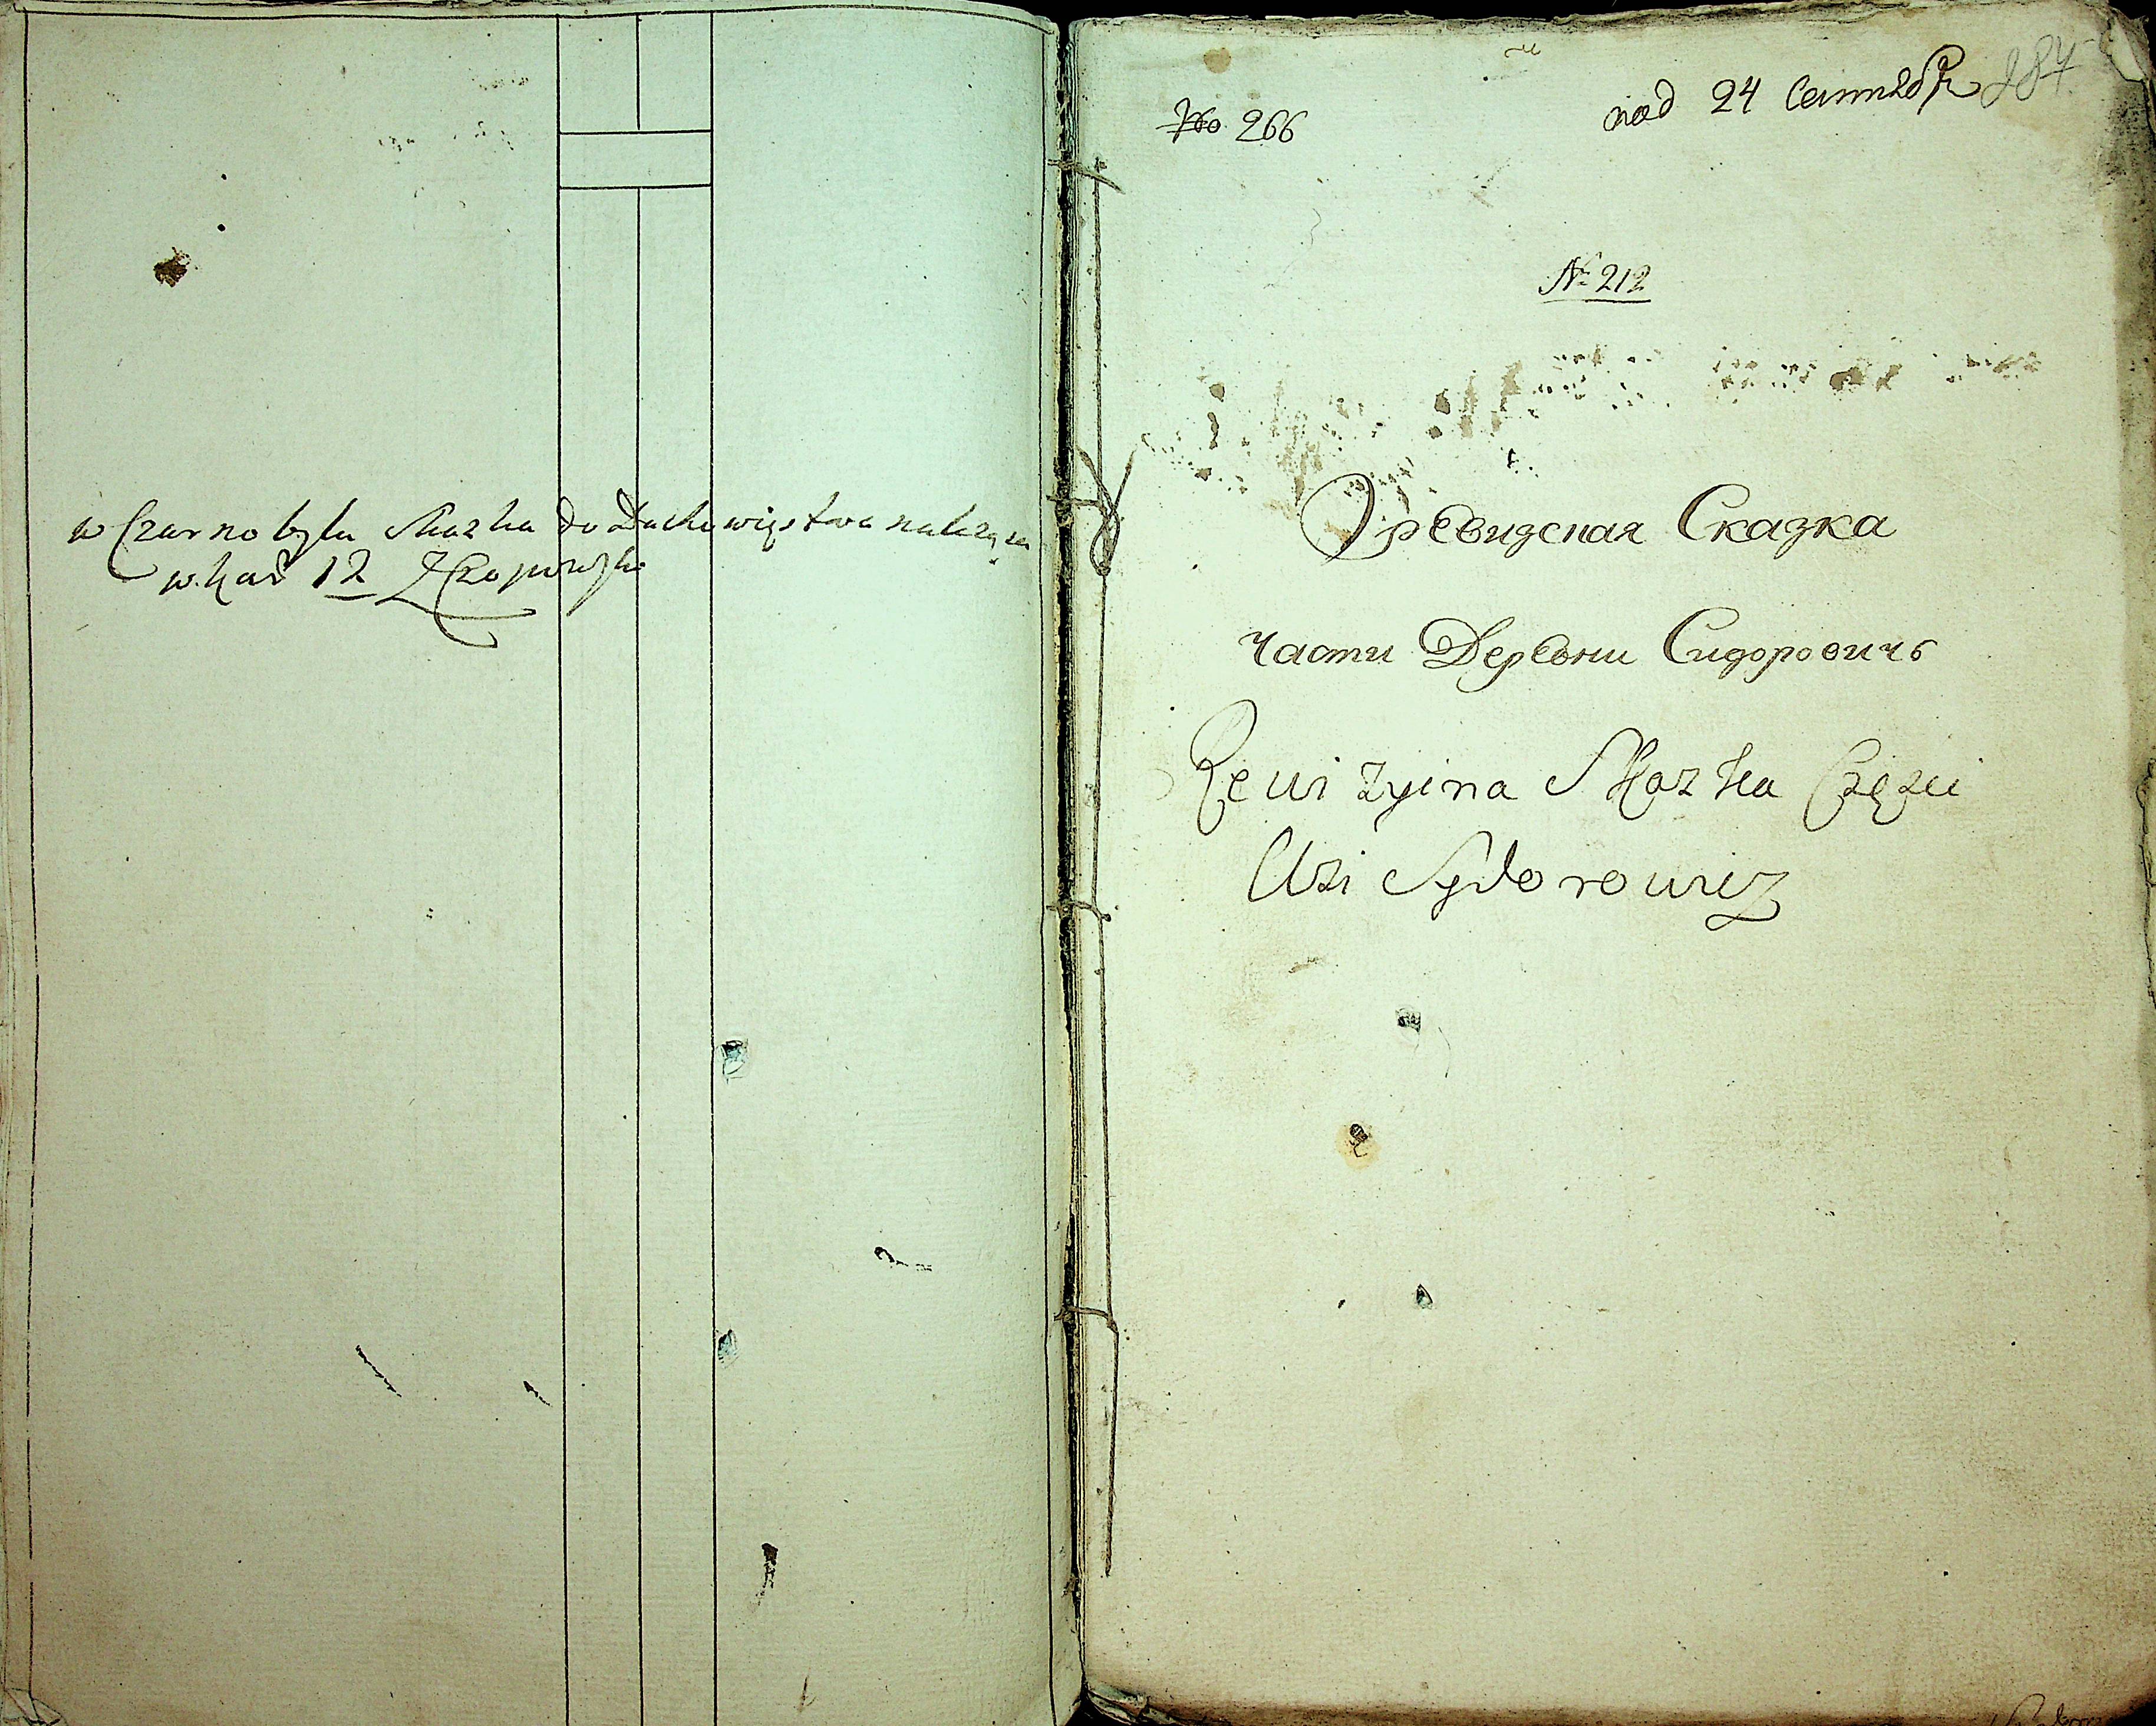 w Czarnobylu Skazka do Duchowieństwa należąca
wkad 12
No 266
под 24 Сентября 284
№ 212
Ревизская Сказка
части Деревни Сидоровичъ
Rewizyina Skazka Częsci
Wsi Sydorowicz